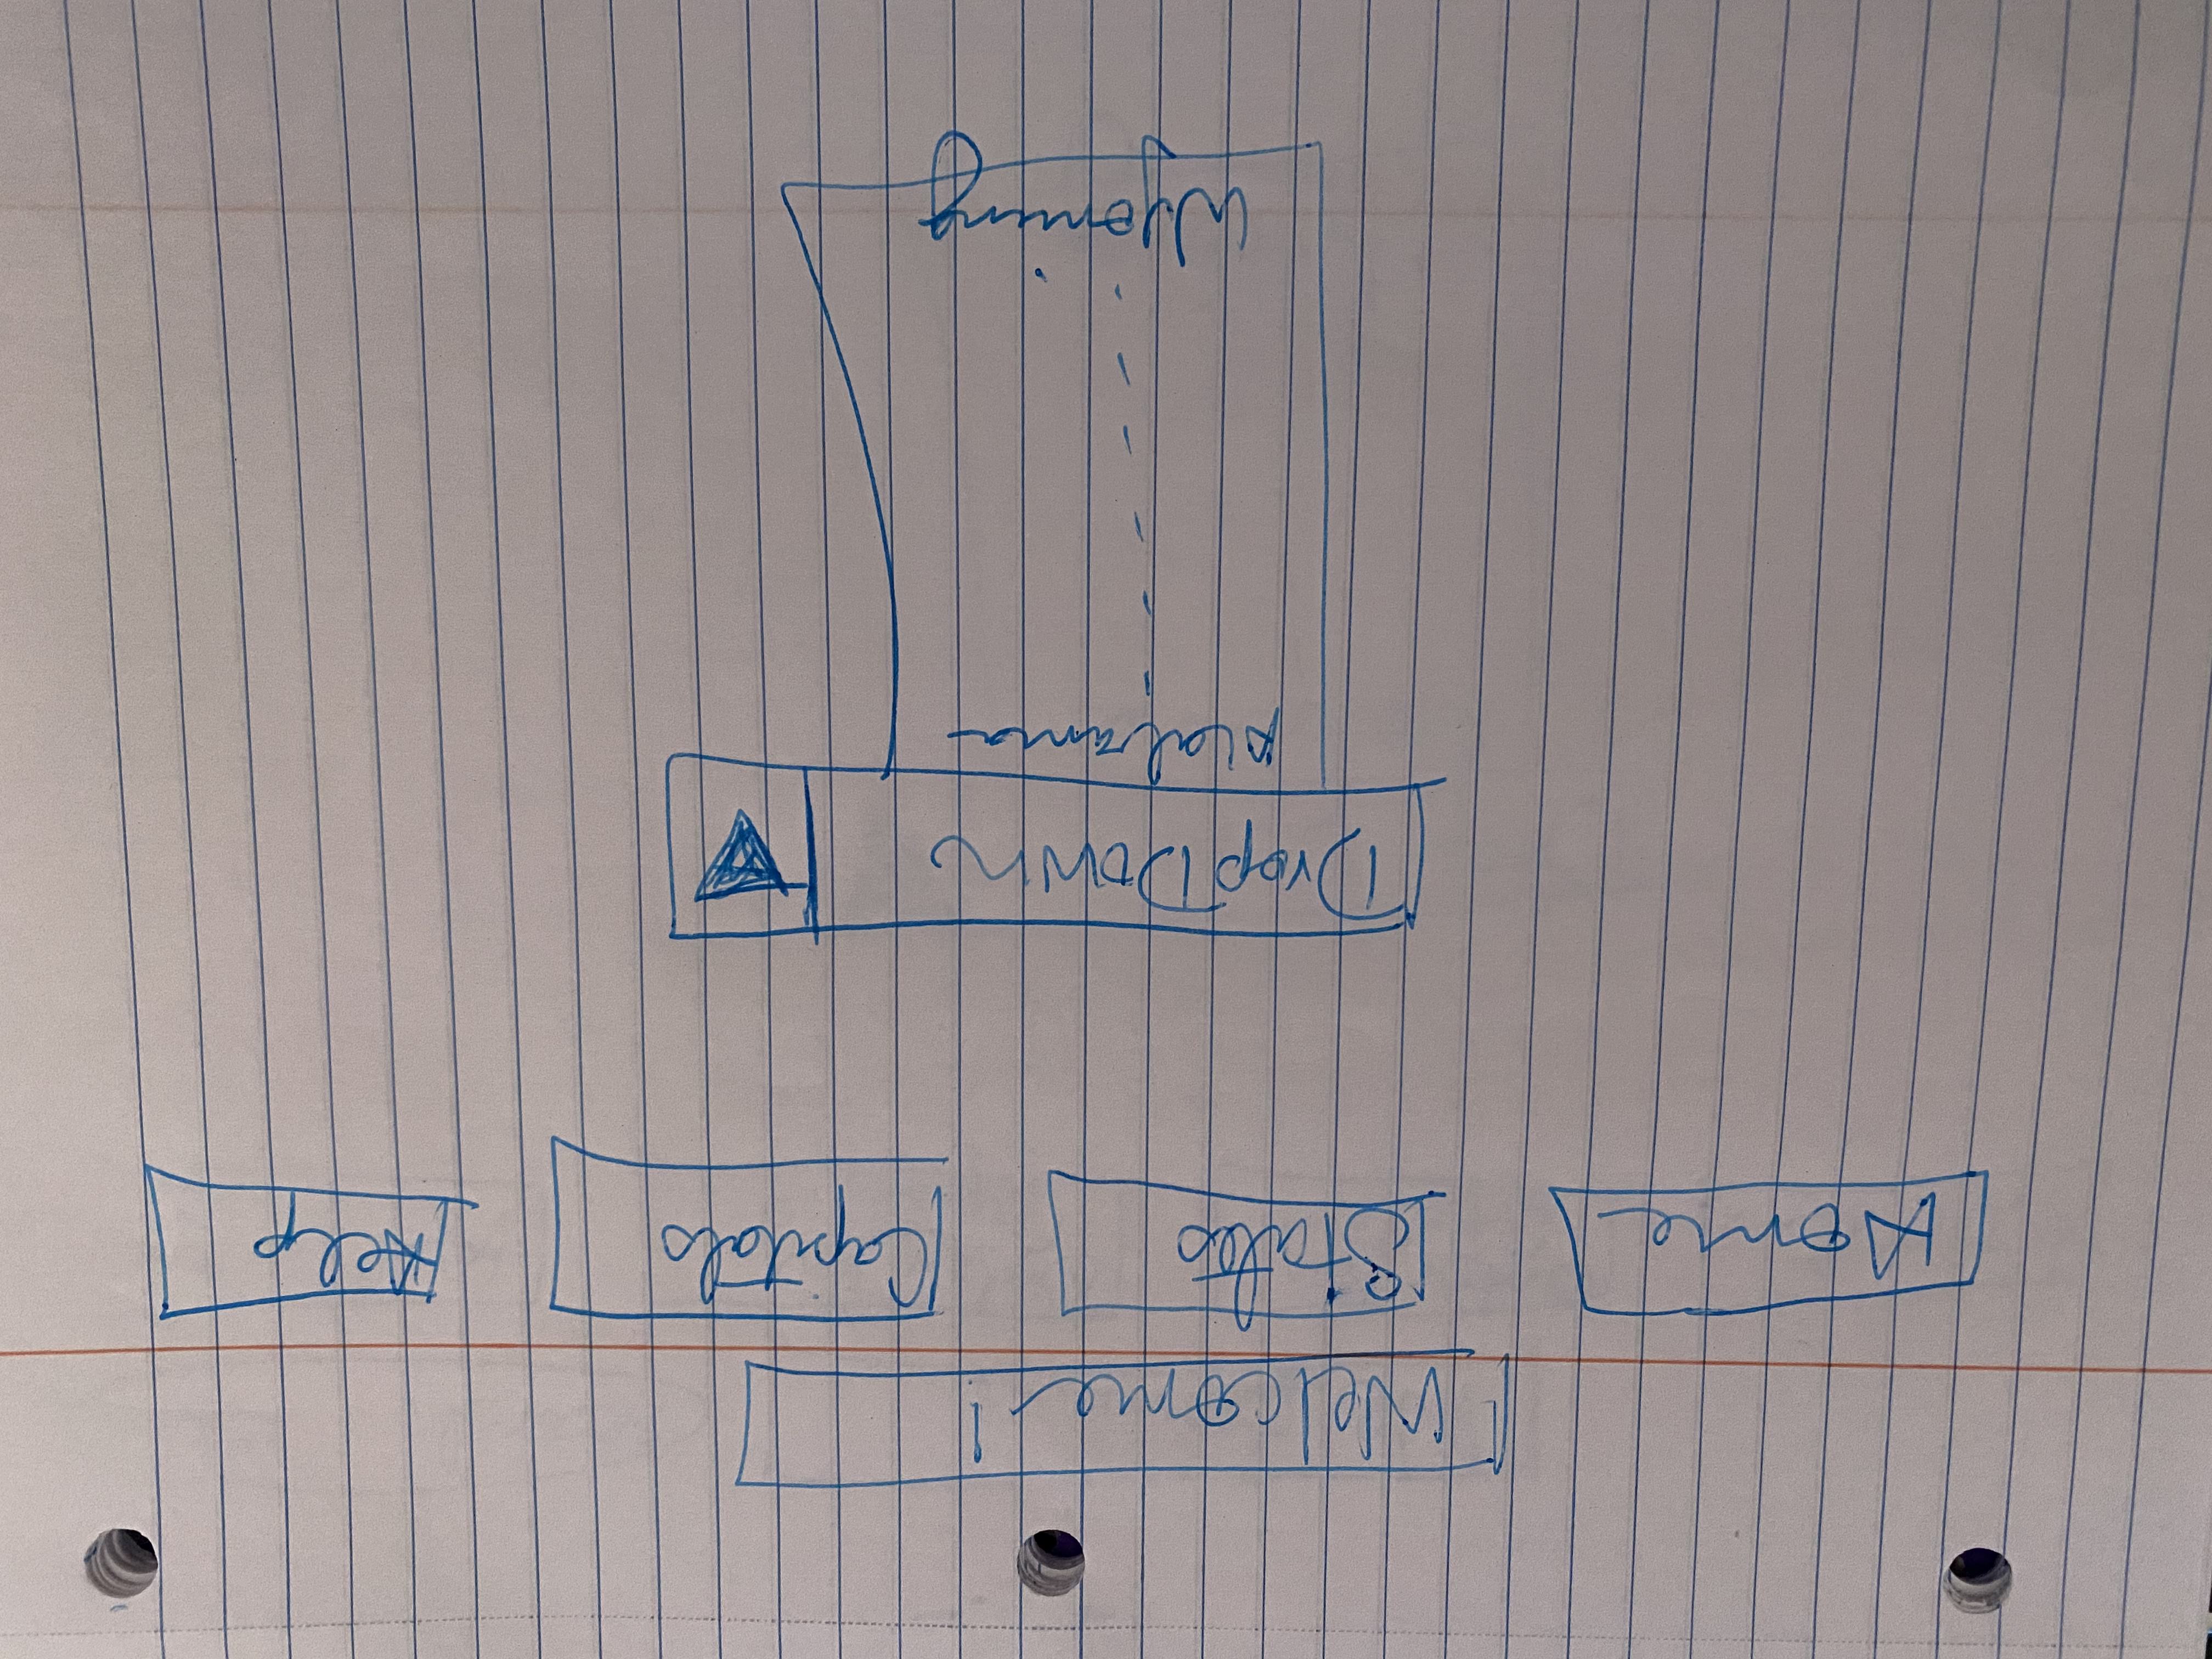 Welcome!
Home States Capitals Help
DropDown
Alabama
Wyoming